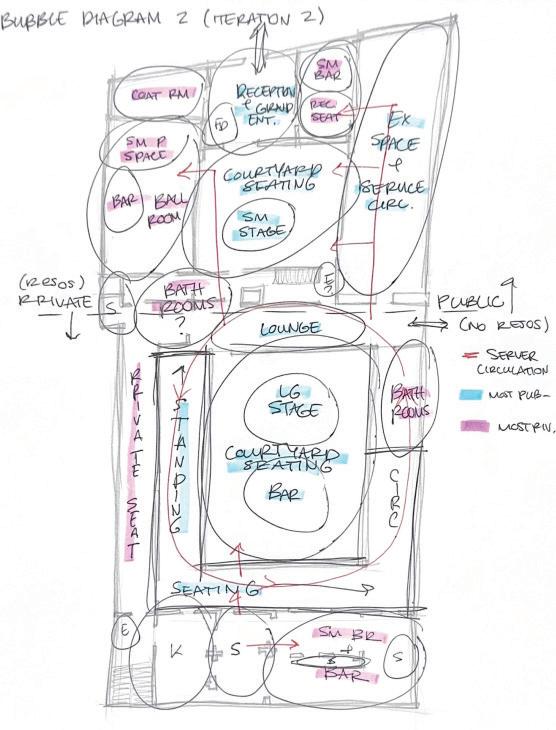 BUBBLE DIAGRAM 2 (ITERATION 2)
SM
BAR
COAT RM
RECEPTION
& GRAND
ENT.
REC
SEAT
EX
SPACE
&
SERVICE
CIRC.
SM P
SPACE
COURTYARD
SEATING
BAR
BALL
ROOM
SM
STAGE
(RESOS)
PRIVATE
S
BATH
ROOMS
?
E
?
PUBLIC
(NO RESOS)
LOUNGE
SERVER
CIRCULATION
MOST PUB-
MOST PIV.
PRIVATE SEAT
STANDING
LG
STAGE
BATH
ROOMS
COURTYARD
SEATING
BAR
CIRC
SEATING
E
K
S
SM BR
&
BAR
S